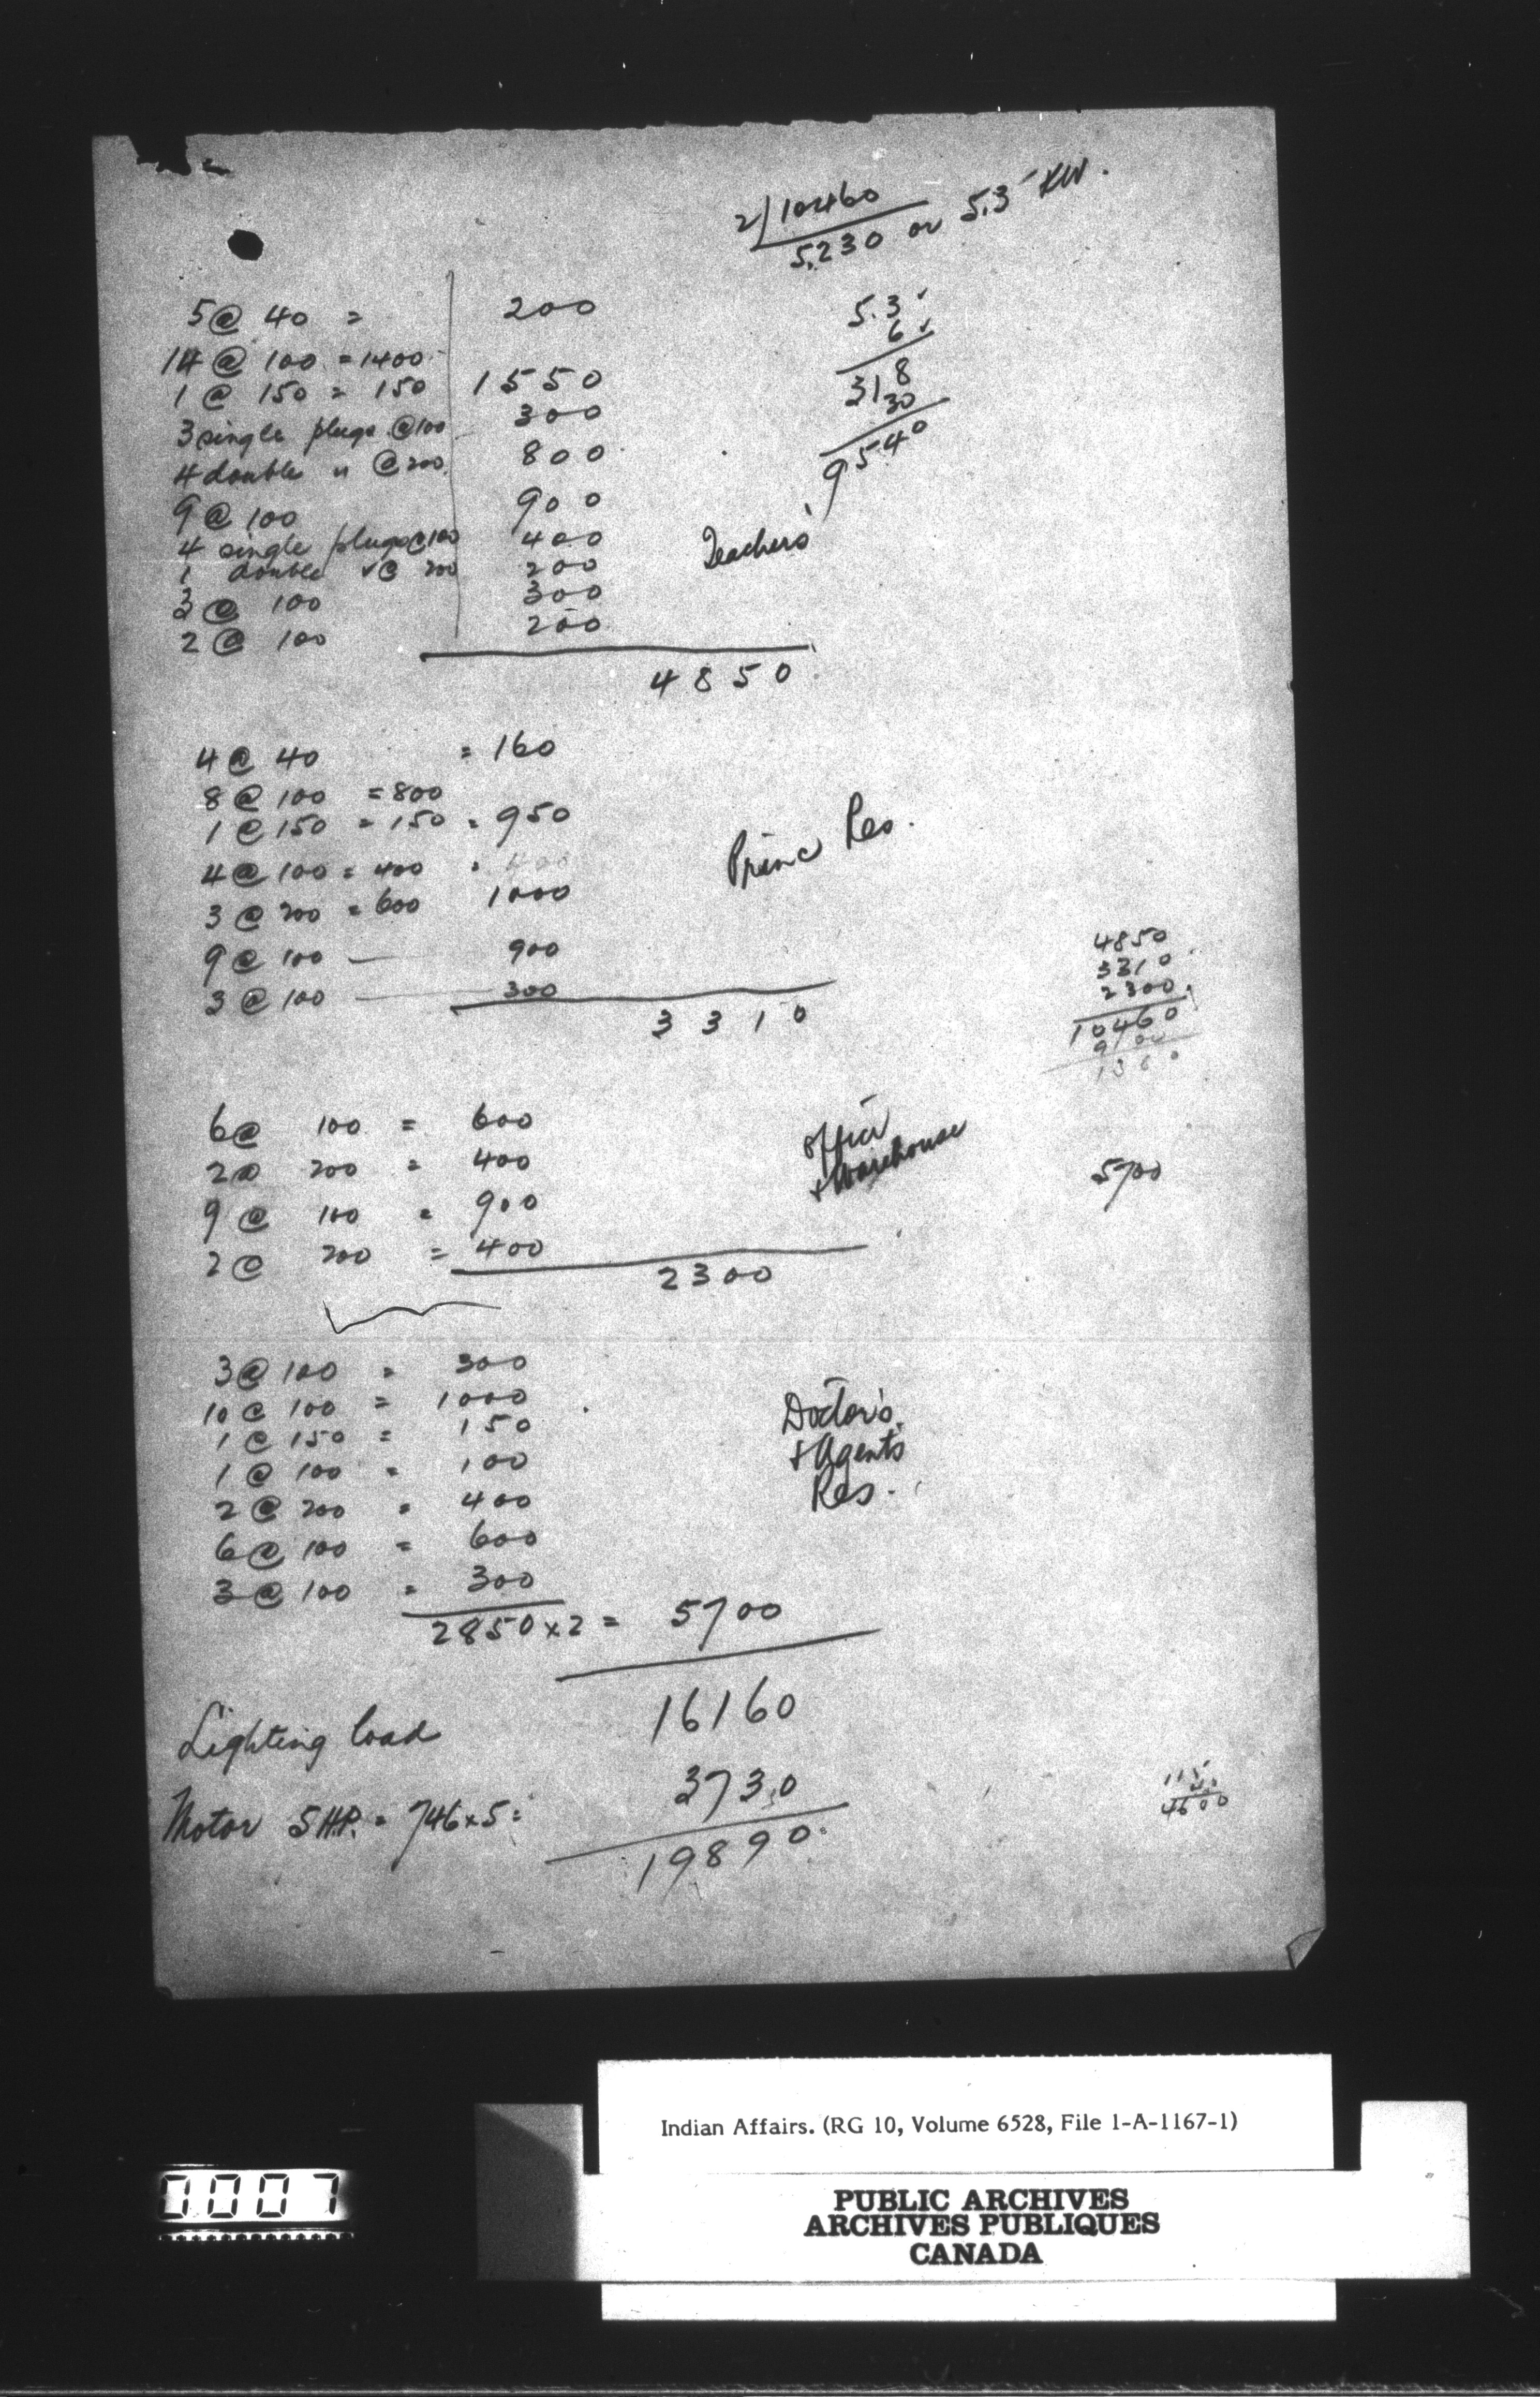 2/10460
5,230 or 5.3 KW.
5@ 40 = 200
14 @ 100 = 1400
1 @ 150 = 150 1550
3 single plugs @100 300
4 double " @ 200 800
9 @ 100 900
4 single plugs @ 100 400
1 double " @ 200 200
3 @ 100 300
2 @ 100 200
4850
Teachers'
5.3
6
318
30
9540
4 @ 40 = 160
8 @ 100 = 800
1 @ 150 = 150 = 950
4 @ 100 = 400 = 400
3 @ 200 = 600 1000
9 @ 100 — 900
3 @ 100 — 300
3310
Princ Res.
4850
3310
2300
10460
9100
1360
6@ 100 = 600
2@ 200 = 400
9 @ 100 = 900
2@ 200 = 400
2300
Office
+ Warehouse
5700
3@ 100 = 300
10 @ 100 = 1000
1 @ 150 = 150
1 @ 100 = 100
2 @ 200 = 400
6@ 100 = 600
3 @ 100 = 300
2850 x 2 = 5700
Doctor's
+ Agents
Res.
16160
Lighting load
3730
Motor 5 H.P. = 746x5 =
19890
115
40
4600
Indian Affairs. (RG 10, Volume 6528, File 1-A-1167-1)
PUBLIC ARCHIVES
ARCHIVES PUBLIQUES
CANADA
0007